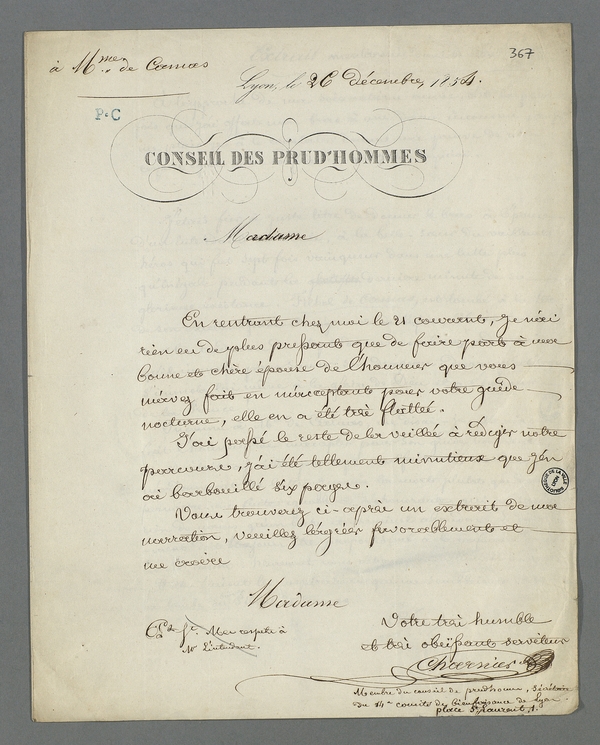 à M.me de Camas
367
Lyon, le 26 décembre 1854.
P.C
CONSEIL DES PRUD'HOMMES
Madame
En rentrant chez moi le 21 courant, je n'ai
rien eu de plus pressant que de faire part à ma
bonne et chère épouse de l'honneur que vous
m'avez fait en m'acceptant pour votre guide
nocturne, elle en a été très flattée.
J'ai passé le reste de la veillée à rédiger notre
parcours, j'ai été tellement minutieux que j'en
ai barbouillé six pages.
Vous trouverez ci-après un extrait de ma
narration, veuillez l'agréer favorablement et
me croire
Madame
Votre très humble
et très obéissant serviteur
Charnier
Mes respects à
Mr l'intendant.
Membre du conseil de prudhomme, Secrétaire
du 14e comité de bienfaisance de Lyon
place St Laurent, 1.
BIBLIOTHÈQUE DE LA VILLE
LYON